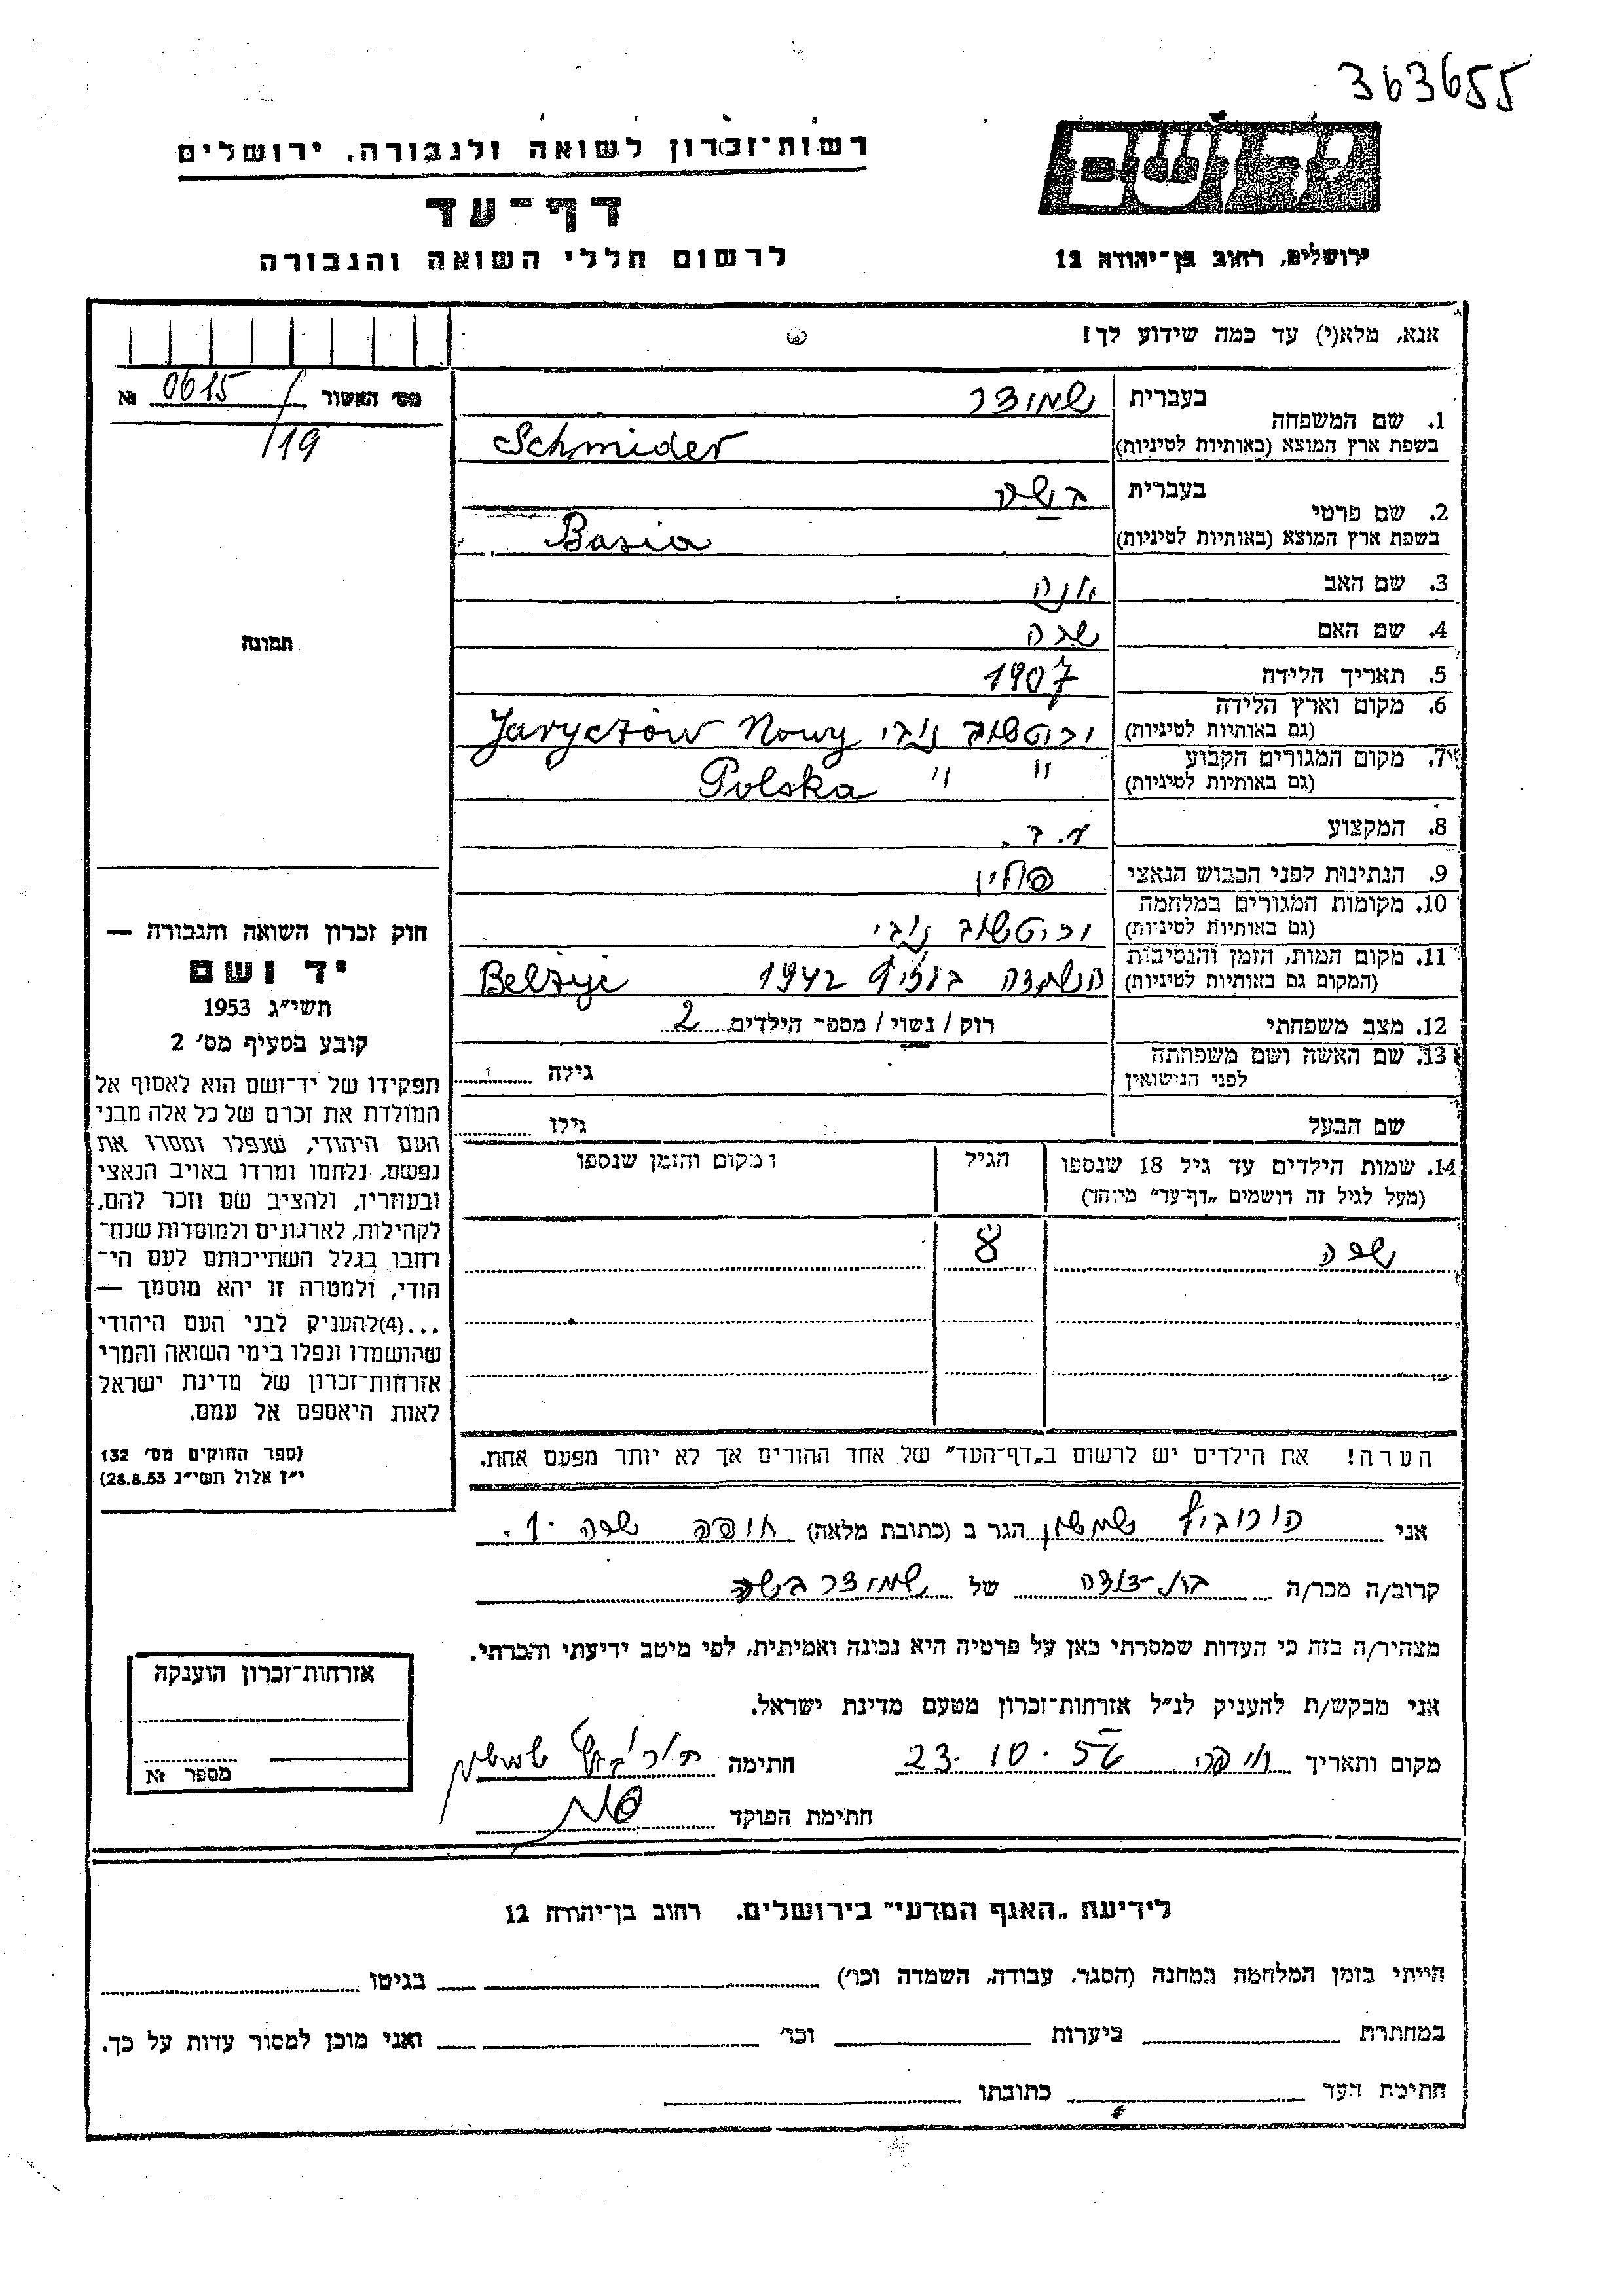 363655
רשות־זכרון לשואה ולגבורה, ירושלים
דף־עד
לרשום חללי השואה והגבורה
יד ושם
ירושלים, רחוב בן־יהודה 12
אנא, מלא(י) עד כמה שידוע לך!
מס׳ האשור № 0615/
/19
1. שם המשפחה
בעברית שמוצר
בשפת ארץ המוצא (באותיות לטיניות) Schmider
2. שם פרטי
בעברית בשה
בשפת ארץ המוצא (באותיות לטיניות) Basia
3. שם האב יונה
4. שם האם שרה
5. תאריך הלידה 1907
6. מקום וארץ הלידה
(גם באותיות לטיניות) נובי Jaryczów Nowy
7. מקום המגורים הקבוע
(גם באותיות לטיניות) " " Polska
8. המקצוע
9. הנתינות לפני הכבוש הנאצי פולין
10. מקומות המגורים במלחמה
(גם באותיות לטיניות) נובי
11. מקום המות, הזמן והנסיבות
(המקום גם באותיות לטיניות) 1942 Belżyc
12. מצב משפחתי רוק / נשוי / מספר הילדים 2
13. שם האשה ושם משפחתה
לפני הנישואין
גילה
שם הבעל גילו
14. שמות הילדים עד גיל 18 שנספו
(מעל לגיל זה רושמים „דף־עד״ מיוחד)
הגיל
מקום והזמן שנספו
8
הערה! את הילדים יש לרשום ב„דף־העד״ של אחד ההורים אך לא יותר מפעם אחת.
תמונה
חוק זכרון השואה והגבורה —
יד ושם
תשי״ג 1953
קובע בסעיף מס׳ 2
תפקידו של יד־ושם הוא לאסוף אל
המולדת את זכרם של כל אלה מבני
העם היהודי, שנפלו ומסרו את
נפשם, נלחמו ומרדו באויב הנאצי
ובעוזריו, ולהציב שם וזכר להם,
לקהילות, לארגונים ולמוסדות שנח־
רחבו בגלל השתייכותם לעם הי־
הודי, ולמטרה זו יהא מוסמך —
...(4)להעניק לבני העם היהודי
שהושמדו ונפלו בימי השואה והמרי
אזרחות־זכרון של מדינת ישראל
לאות היאספם אל עמם.
(ספר החוקים מס׳ 132
י״ז אלול תשי״ג 28.8.53)
אני הורוביץ שמשון הגר ב (כתובת מלאה)
קרוב/ה מכר/ה בת-דודה של שמוצר בשה
מצהיר/ה בזה כי העדות שמסרתי כאן על פרטיה היא נכונה ואמיתית, לפי מיטב ידיעתי והכרתי.
אני מבקש/ת להעניק לנ״ל אזרחות־זכרון מטעם מדינת ישראל.
מקום ותאריך 23.10.56 חתימה הורוביץ שמשון
חתימת הפוקד
אזרחות־זכרון הוענקה
מספר №
לידיעת „האגף המדעי״ בירושלים. רחוב בן־יהודה 12
הייתי בזמן המלחמה במחנה (הסגר, עבודה, השמדה וכו׳) בגיטו
במחתרת ביערות וכו׳ ואני מוכן למסור עדות על כך.
חתימת העד כתובתו